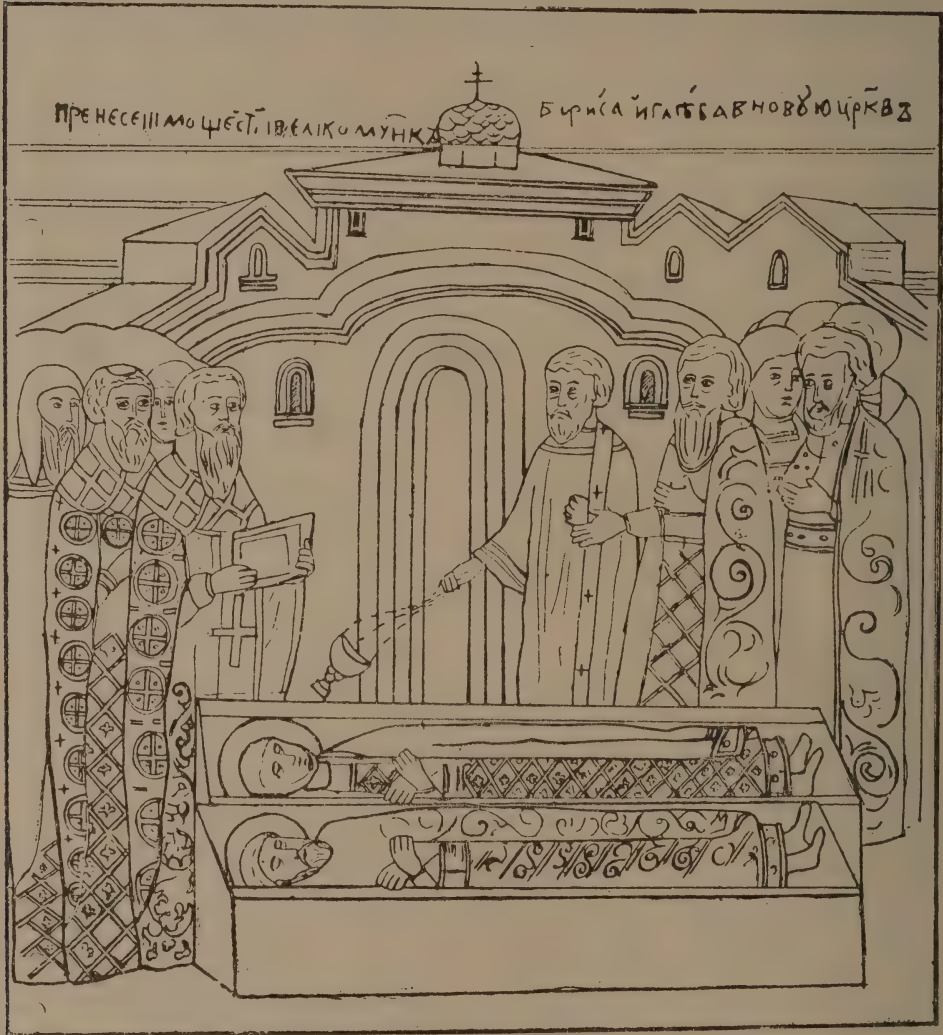 ПРЕНЕСЕНІ МОЩЕ СТ͠. І ВЕЛІКОМУ҃НКЪ БѡРИ́СА И҆ ГЛѢБА В НОВꙊЮ ЦР҃КВЪ